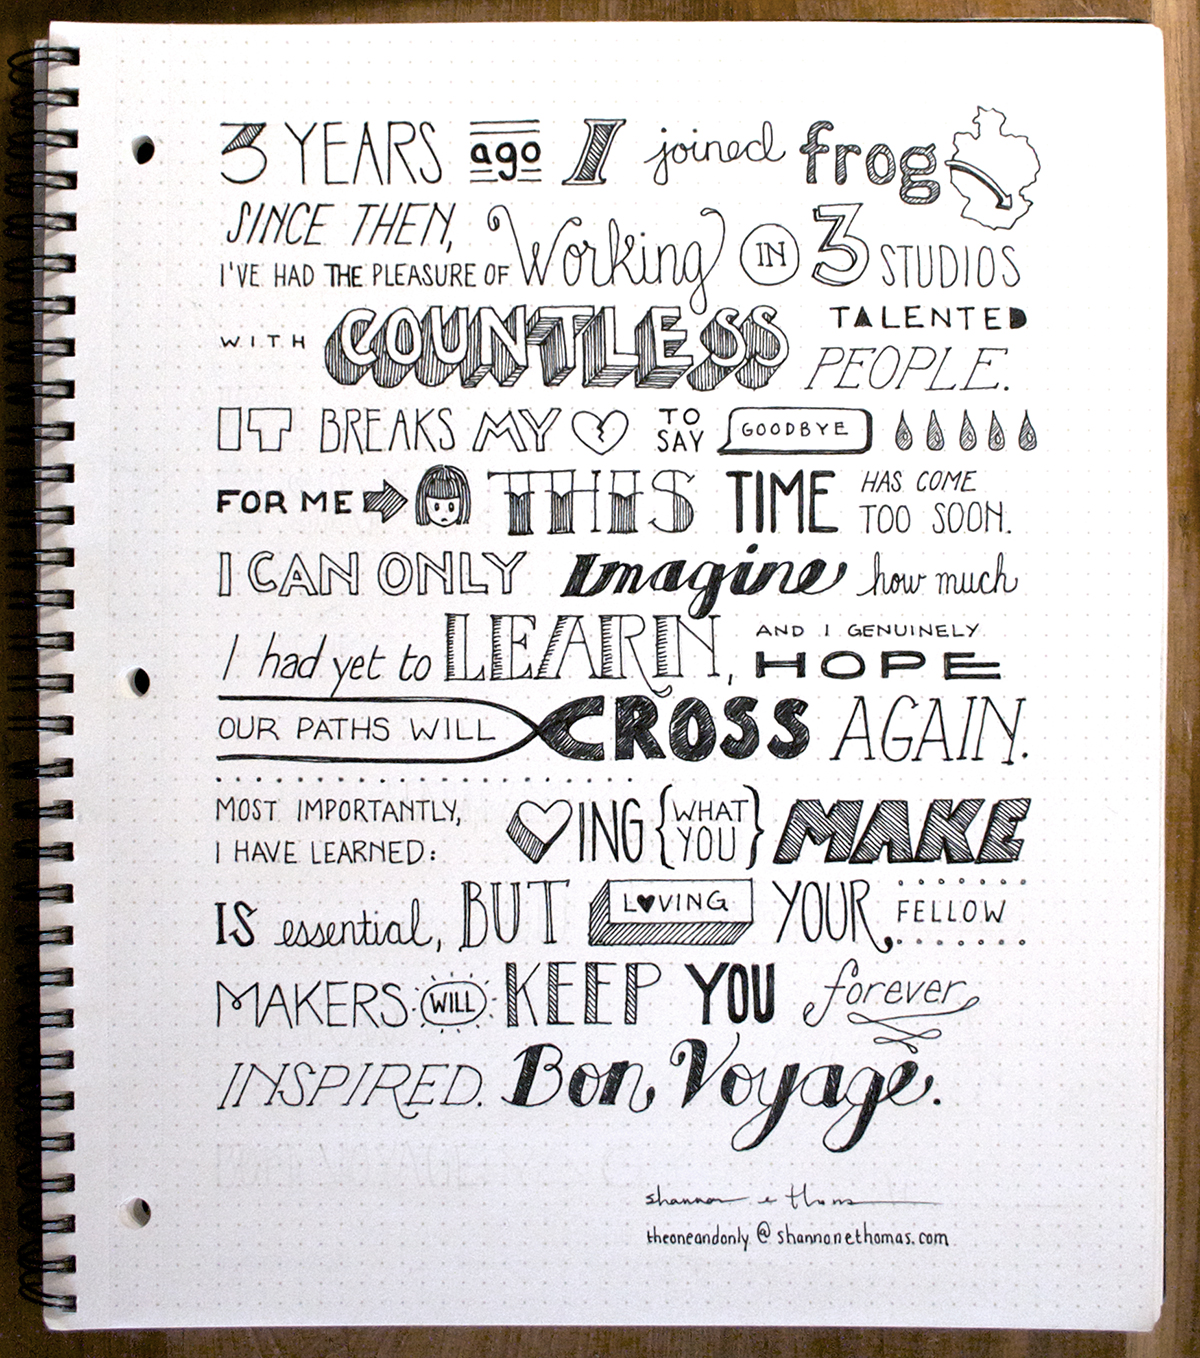 3 YEARS ago I joined frog
SINCE THEN,
I'VE HAD THE PLEASURE OF Working IN 3 STUDIOS
WITH COUNTLESS TALENTED
PEOPLE.
IT BREAKS MY TO SAY GOODBYE
FOR ME THIS TIME HAS COME TOO SOON.
I CAN ONLY Imagine how much
I had yet to LEARN, AND I GENUINELY
HOPE
OUR PATHS WILL CROSS AGAIN.
MOST IMPORTANTLY,
I HAVE LEARNED: ING {WHAT YOU} MAKE
IS essential, BUT LOVING YOUR FELLOW
MAKERS WILL KEEP YOU forever
INSPIRED. Bon Voyage.
shannon e thomas
theoneandonly@shannonethomas.com